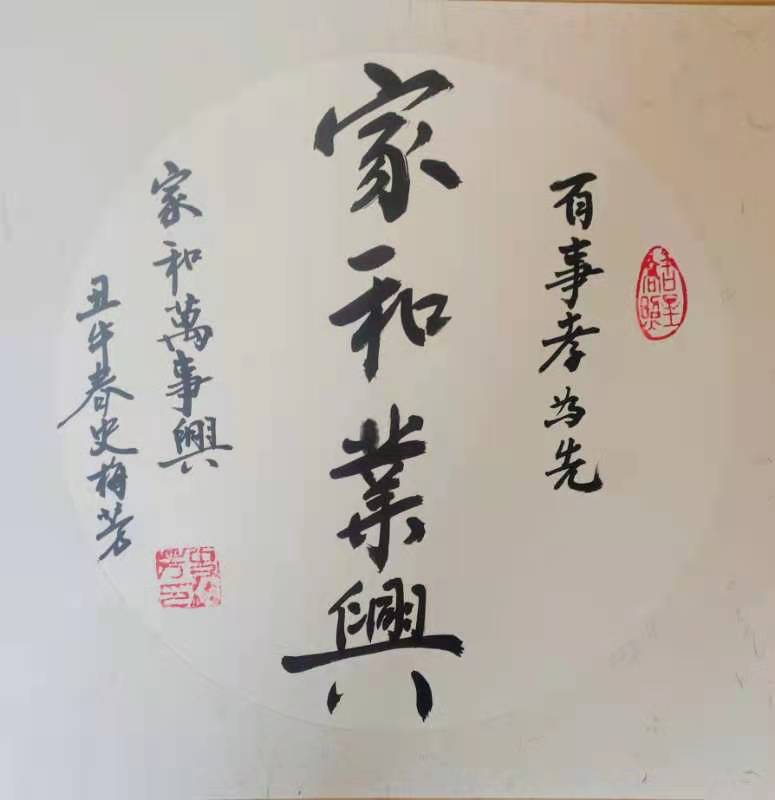 百事孝为先
家和業興
家和萬事興
丑牛春史梅芳